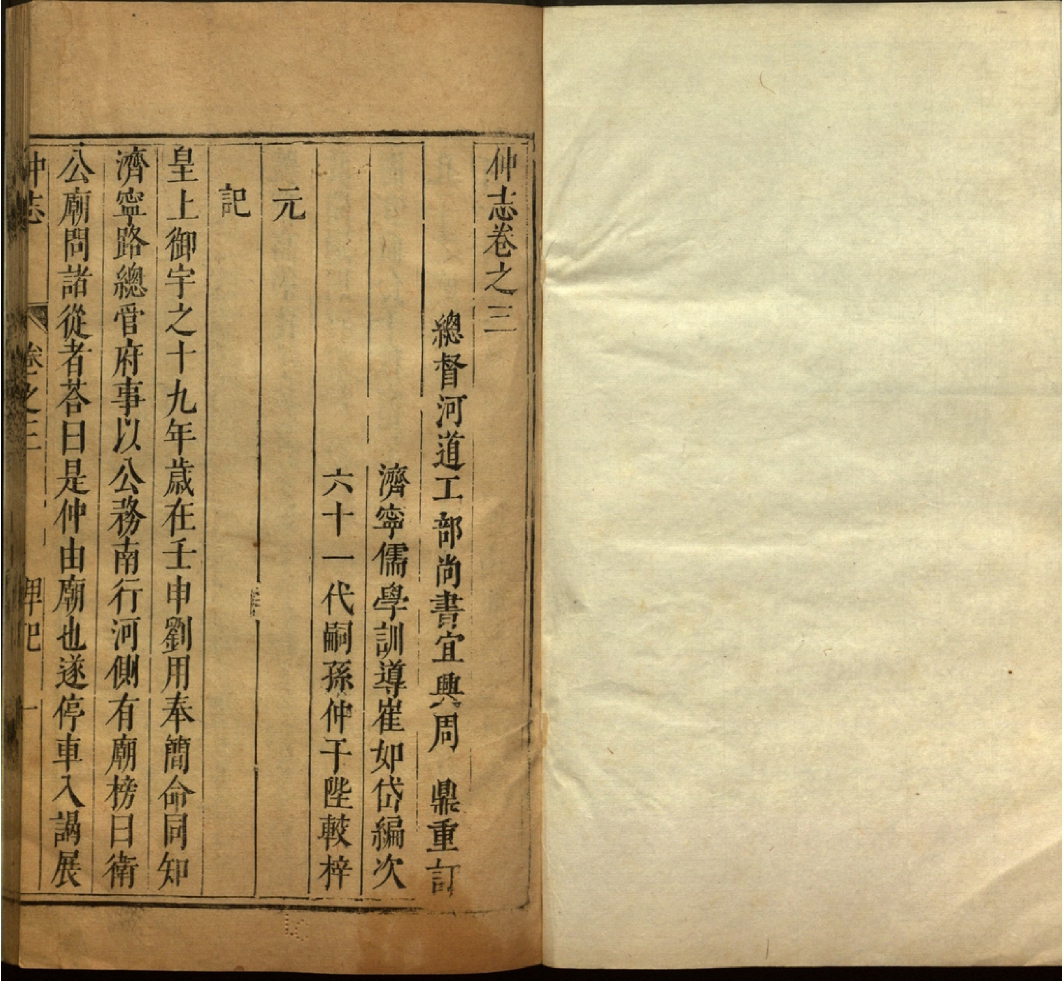 仲志卷之三
總督河道工部尚書宜興周 鼎重訂
濟寧儒學訓導崔如岱編次
六十一代嗣孫仲于陛較梓
元
記
皇上御宇之十九年歲在壬申劉用奉簡命同知
濟寧路總管府事以公務南行河側有廟榜曰衛
公廟問諸從者荅曰是仲由廟也遂停車入謁展
仲志 卷之三 碑記 一